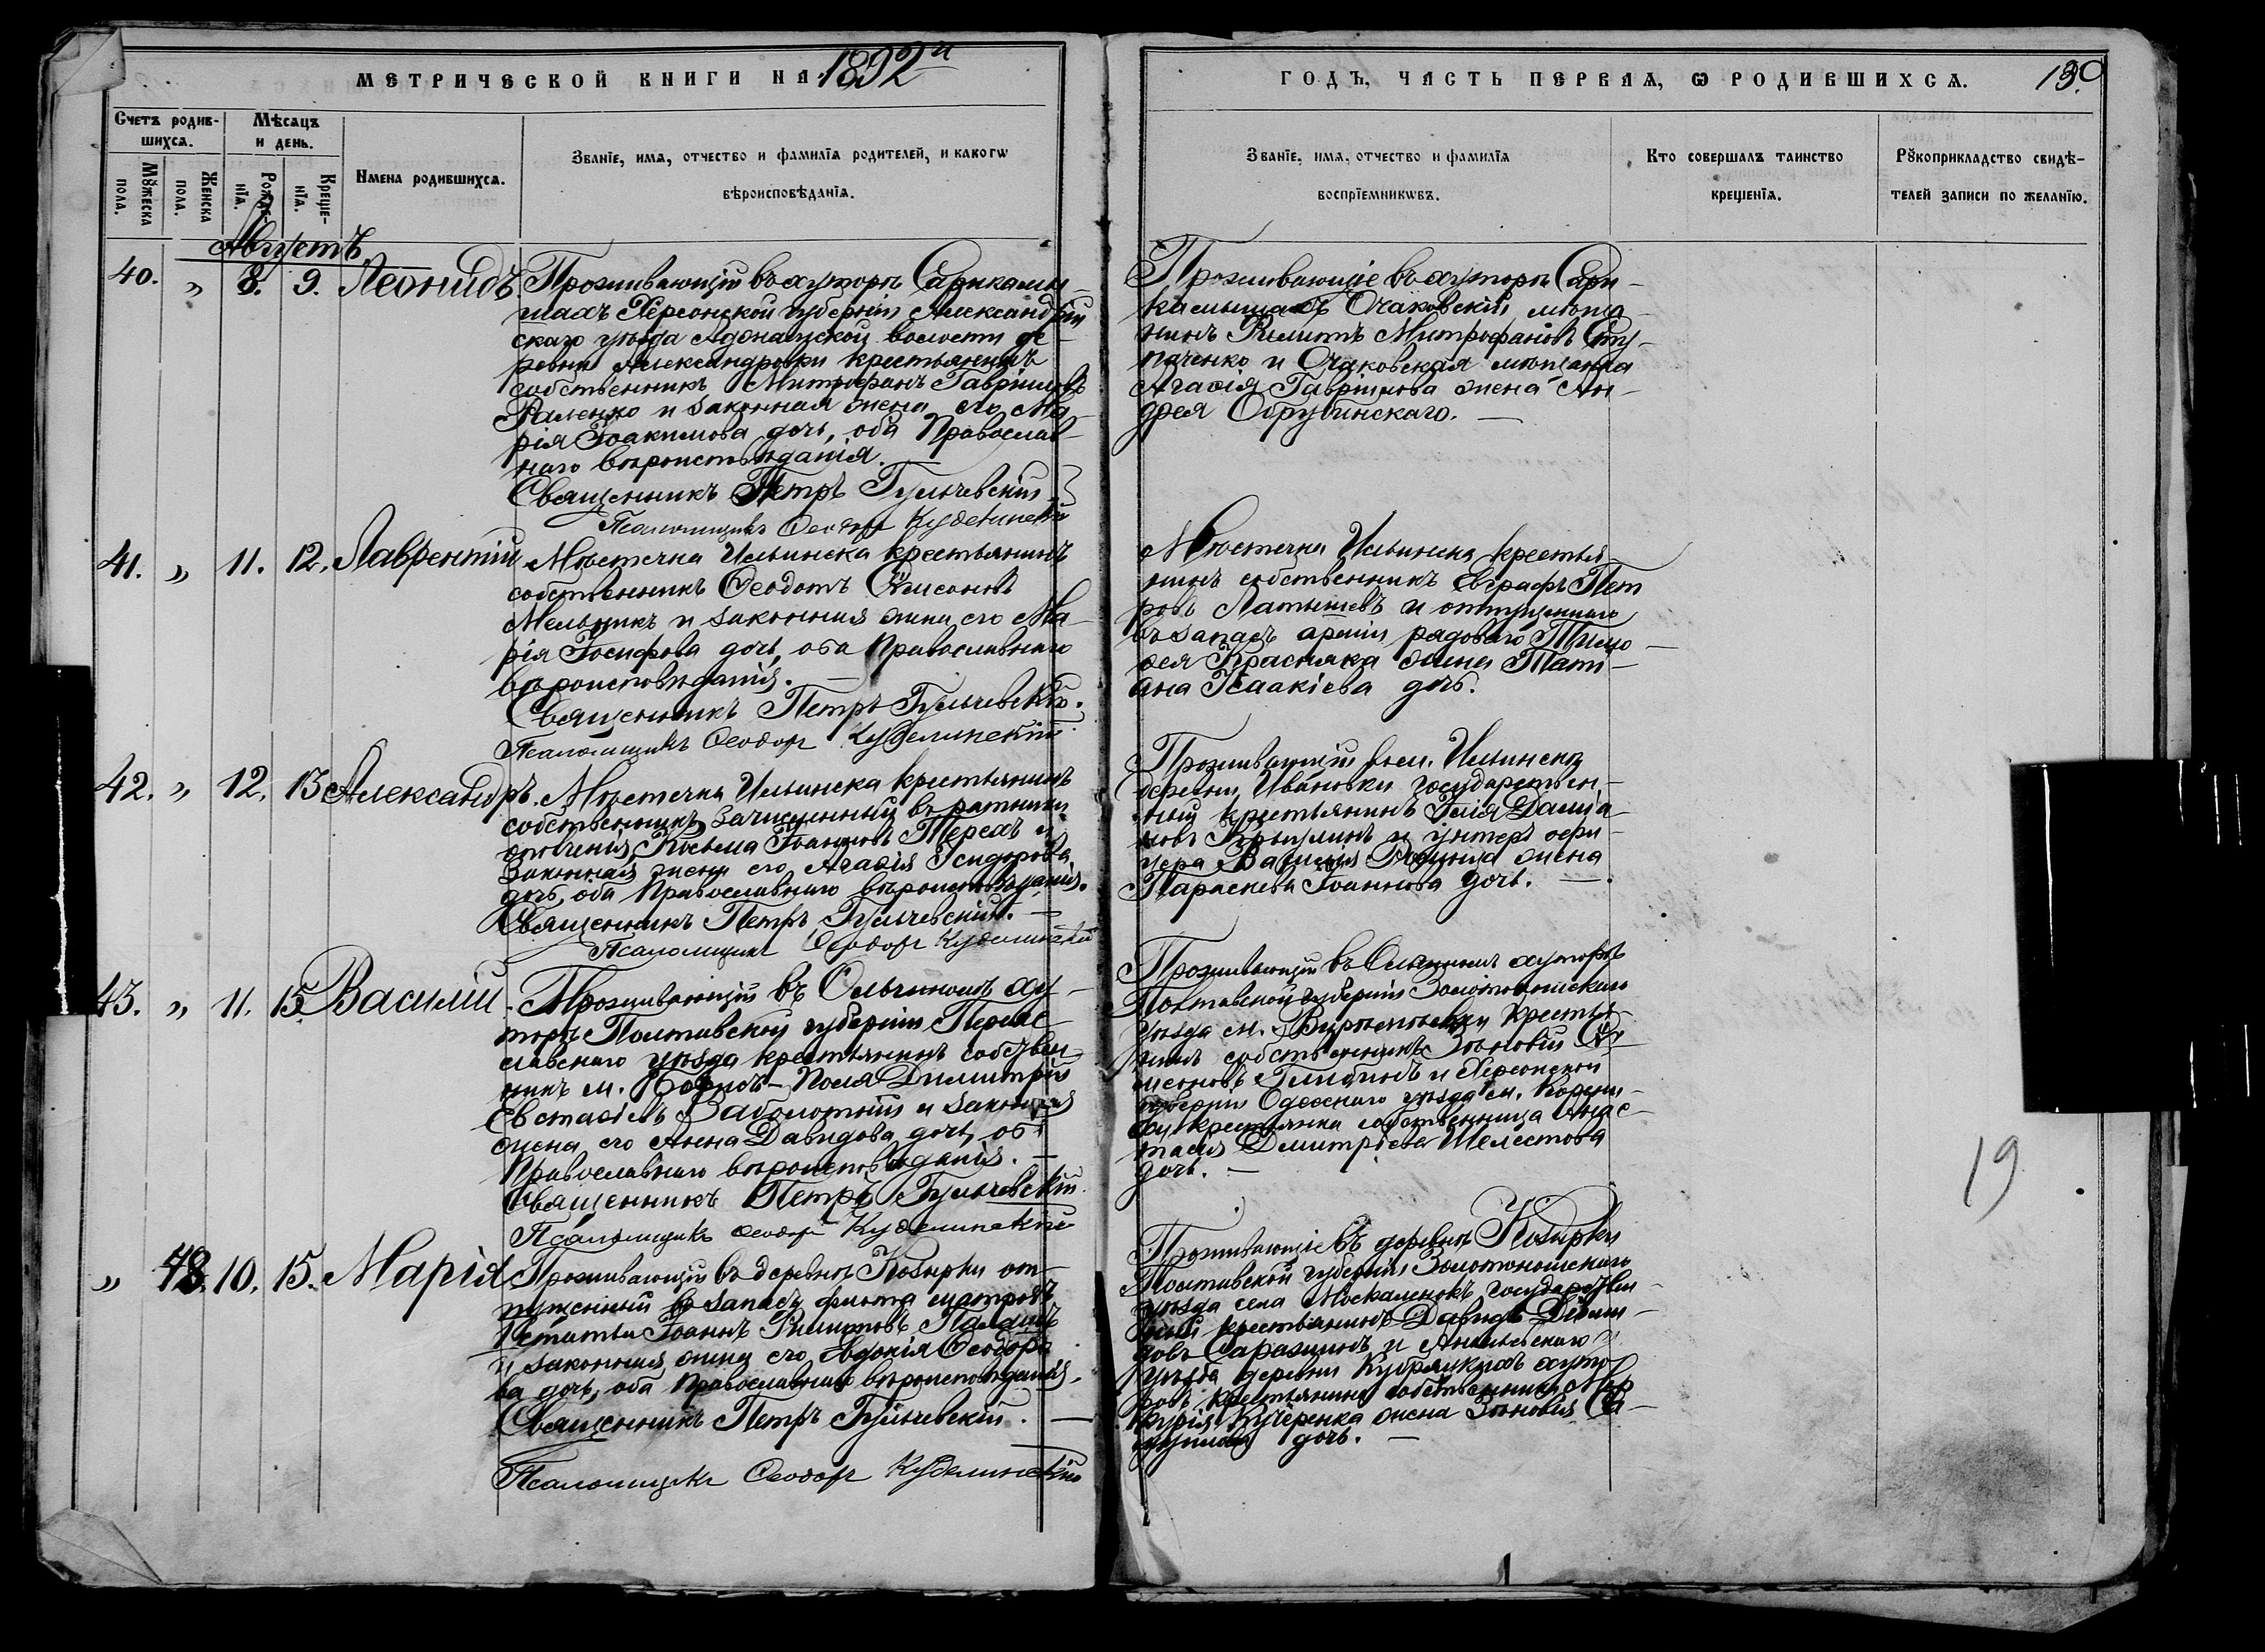 МЕТРИЧЕСКОЙ КНИГИ НА 1892й
ГОДЪ, ЧАСТЬ ПЕРВАЯ, Ѡ РОДИВШИХСѦ.
Счетъ родив-
шихсѧ.
Мѣсяцъ
и день.
Мꙋжеска
пола.
Женска
пола.
Рожде-
нїѧ.
Креще-
нїѧ.
Имена родившихсѧ.
Званїе, имѧ, отчество и фамилїѧ родителей, и какогѡ
вѣроисповѣданїѧ.
Званїе, имѧ, отчество и фамилїѧ
воспрїемникѡвъ.
Кто совершалъ таинство
крещенїѧ.
Рꙋкоприкладство свидѣ-
телей записи по желанїю.
Августъ
40. „ 8. 9. Леонидъ.
Проживающій въ хуторѣ Сарикамы-
шахъ Херсонской губерніи Александрій
скаго уѣзда Аджамской волости де-
ревни Александровки крестьянинъ
собственникъ Митрофанъ Гавріиловъ
и законная жена его Ма-
рія Іоакимова дочь, оба Православ-
наго вѣроисповѣданія.
Священникъ Петръ Гульчевскій
Псаломщикъ Ѳеодоръ Куделинскій
Проживающіе въ хуторѣ Сари-
камышахъ Очаковскій мѣща-
нинъ Митрофановъ Сту-
паченко и Очаковская мѣщанка
Агаѳія Гавріилова жена Ан-
дрея Обрубинскаго. —
41. „ 11. 12. Лаврентій
Мѣстечка Ильинска крестьянинъ
собственникъ Ѳеодотъ
Мельникъ и законная жена его Ма-
рія Іосифова дочь, оба Православнаго
вѣроисповѣданія. —
Священникъ Петръ Гульчевскій.
Псаломщикъ Ѳеодоръ Куделинскій
Мѣстечка Ильинска крестья-
нинъ собственникъ Евграфъ Пет
ровъ Латышевъ и отпущеннаго
въ запасъ арміи рядоваго Тимо-
ѳея Красняка жена Тати-
ана Исаакіева дочь.
42. „ 12. 13 Александръ.
Мѣстечка Ильинска крестьянинъ
собственникъ зачисленный въ ратники
ополченія Косьма Іоанновъ Терехъ и
законная жена его Агаѳія Исидорова
дочь, оба Православнаго вѣроисповѣданія.
Священникъ Петръ Гульчевскій. —
Псаломщикъ Ѳеодоръ Куделинскій
Проживающіи въ м. Ильинскѣ
деревни Ивановки государствен-
ный крестьянинъ Илія
и унтеръ офи-
цера жена
Параскева Іоаннова дочь. —
43. „ 11. 15. Василій
Проживающій въ Ольгиномъ ху-
торѣ Полтавской губерніи Переяс-
славскаго уѣзда крестьянинъ собствен-
никъ м. Димитрій
Евстаѳіевъ Заболотный и законная
жена его Анна Давидова дочь, оба
Православнаго вѣроисповѣданія. —
Священникъ Петръ Гульчевскій
Псаломщикъ Ѳеодоръ Куделинскій
Проживающіи въ Ольгиномъ хуторѣ
Полтавской губерніи Золотоношскаго
уѣзда м. крестья-
нинъ собственникъ Зѣновій
и Херсонской
губерніи Одесскаго уѣзда м.
крестьянка собственница Анас-
тасія Димитріева Шелестова
дочь. —
„ 48. 10. 15. Марія
Проживающій въ деревнѣ Козырки от-
пущенный въ запасъ флота матросъ
Іоаннъ Филиповъ
и законная жена его Евдокія Ѳеодоро-
ва дочь, оба Православнаго вѣроисповѣданія.
Священникъ Петръ Гульчевскій. —
Псаломщикъ Ѳеодоръ Куделинскій
Проживающіе въ деревнѣ Козырки
Полтавской губерніи Золотоношскаго
уѣзда села Москаленокъ государствен-
ный крестьянинъ Давидъ
и Ананьевскаго
уѣзда деревни хуто-
ровъ крестьянина собственника Мер
курія Кучеренка жена Зѣновія
дочь. —
19